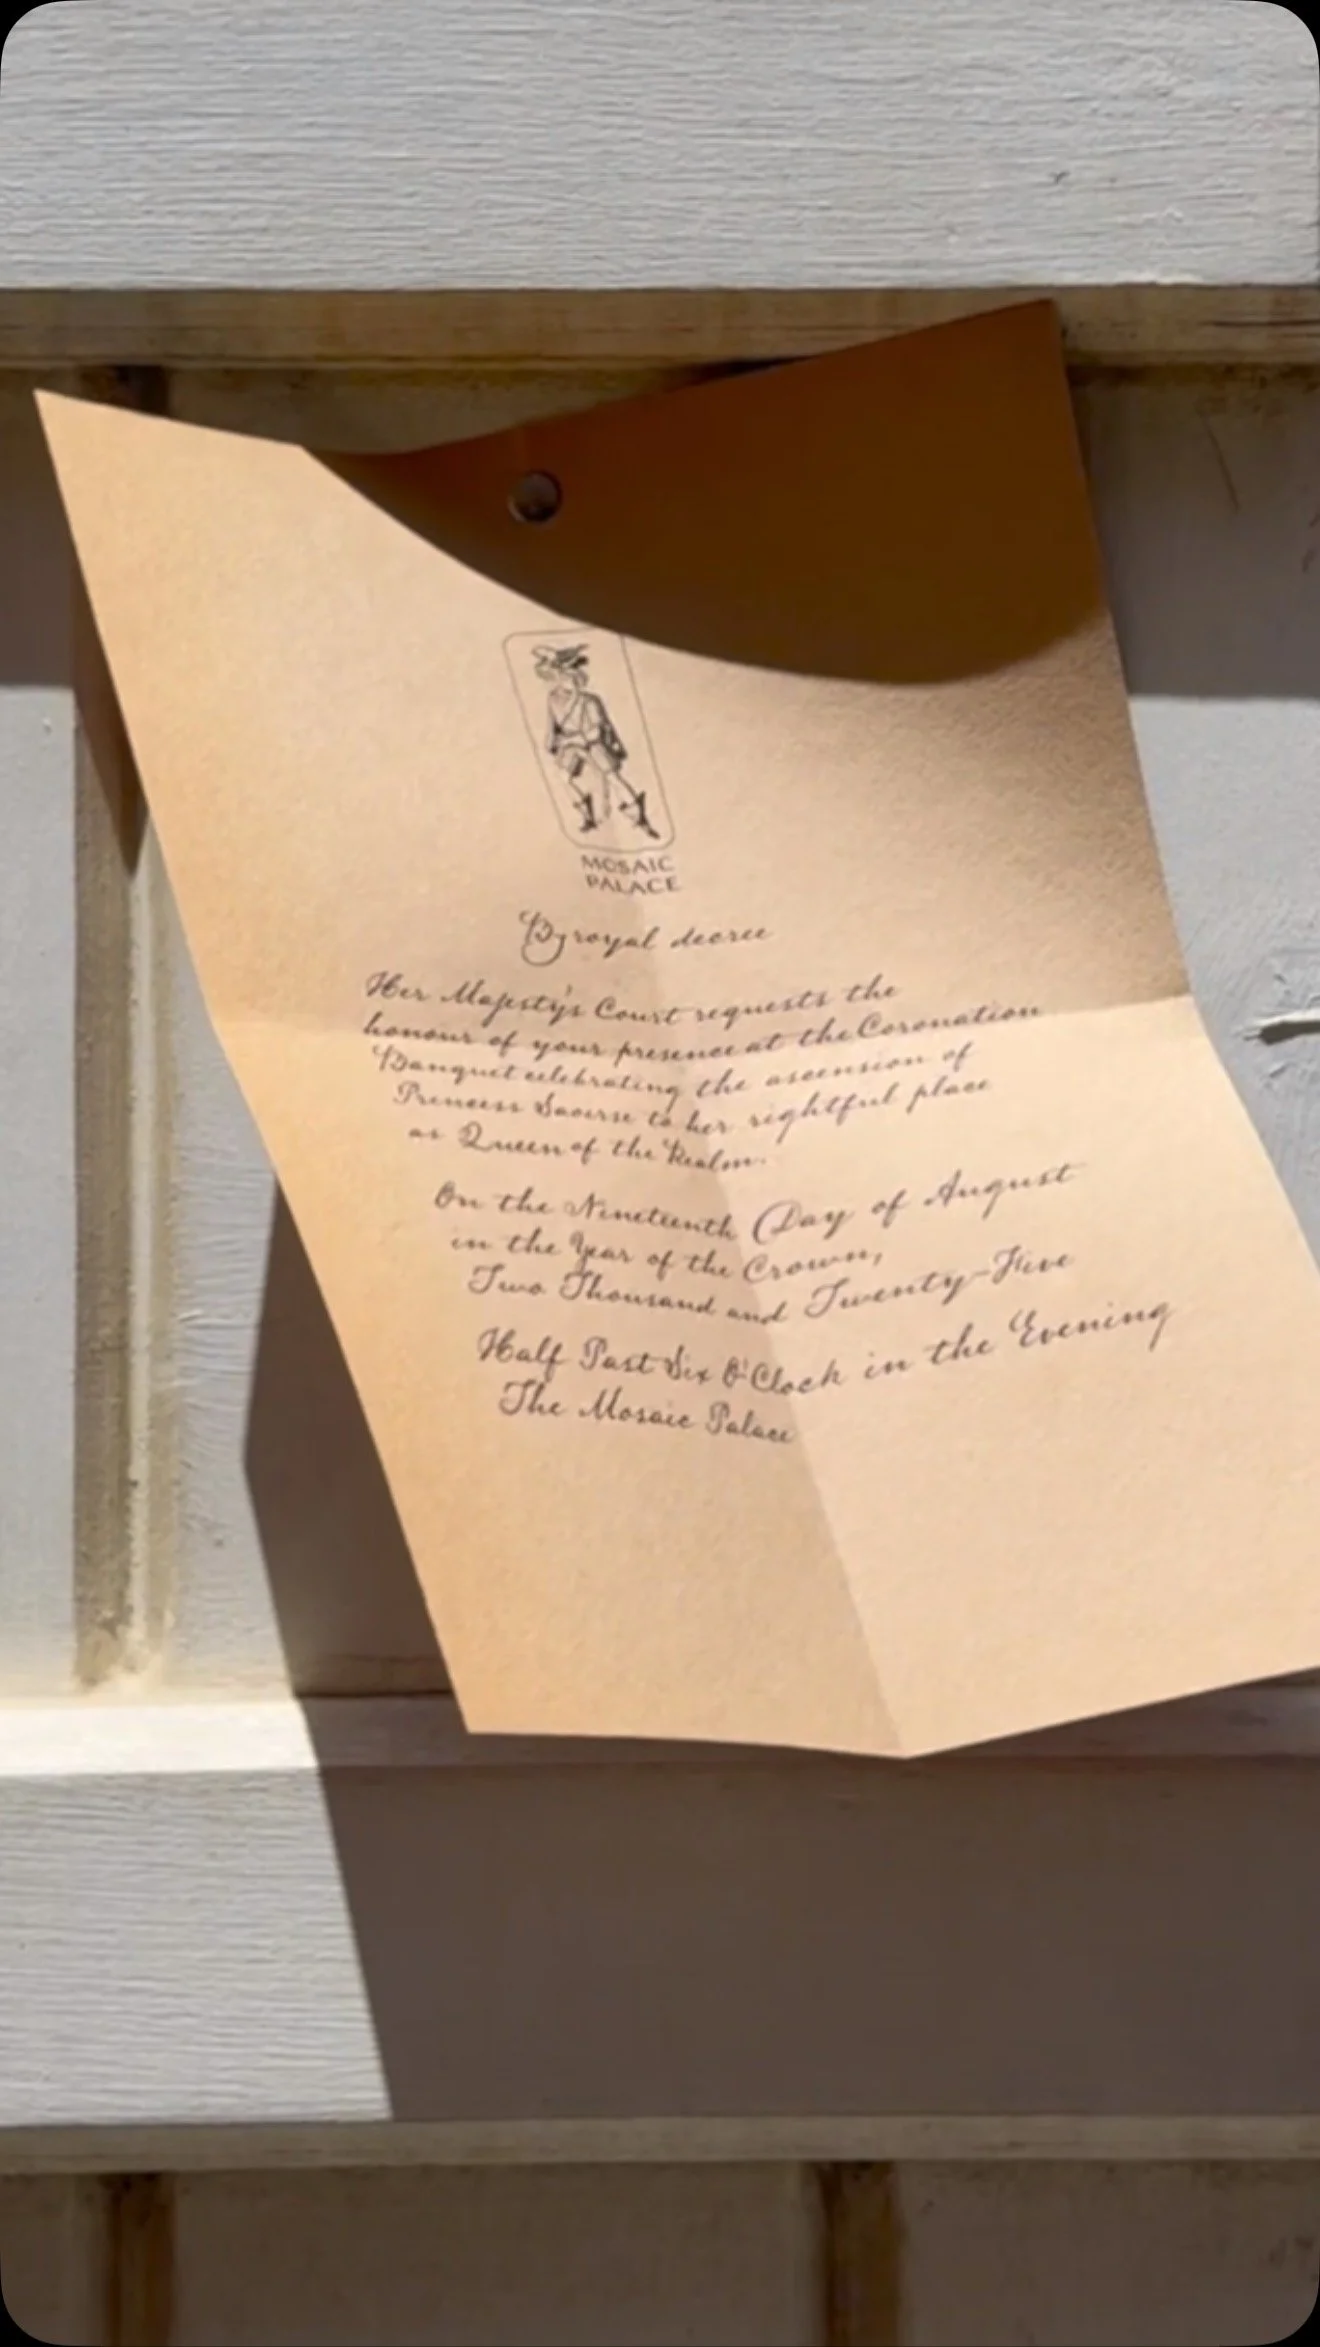 MOSAIC
PALACE
By royal decree
Her Majesty's Court requests the
honour of your presence at the Coronation
Banquet celebrating the ascension of
Princess Saoirse to her rightful place
as Queen of the Realm.
On the Nineteenth Day of August
in the Year of the Crown,
Two Thousand and Twenty-Five
Half Past Six O'Clock in the Evening
The Mosaic Palace